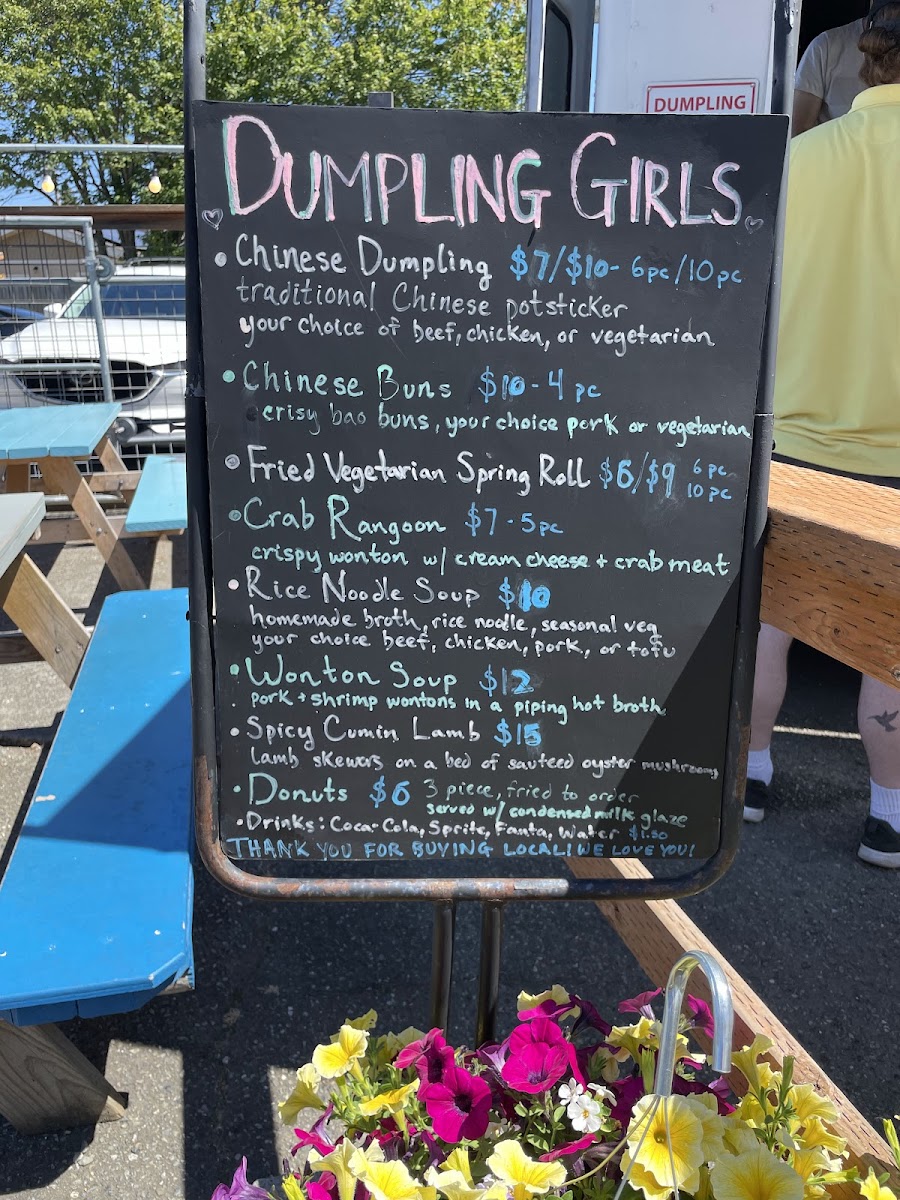 DUMPLING
DUMPLING GIRLS
• Chinese Dumpling $7/$10- 6pc/10pc
traditional Chinese potsticker
your choice of beef, chicken, or vegetarian
• Chinese Buns $10-4 pc
crisy bao buns, your choice pork or vegetarian
• Fried Vegetarian Spring Roll $6/$9 6 pc 10 pc
• Crab Rangoon $7-5pc
crispy wonton w/ cream cheese + crab meat
• Rice Noodle Soup $10
homemade broth, rice noodle, seasonal veg
your choice beef, chicken, pork, or tofu
• Wonton Soup $12
pork + shrimp wontons in a piping hot broth
• Spicy Cumin Lamb $15
lamb skewers on a bed of sauteed oyster mushrooms
• Donuts $6 3 piece, fried to order
served w/ condensed milk glaze
• Drinks: Coca-Cola, Sprite, Fanta, Water $1.50
THANK YOU FOR BUYING LOCAL! WE LOVE YOU!